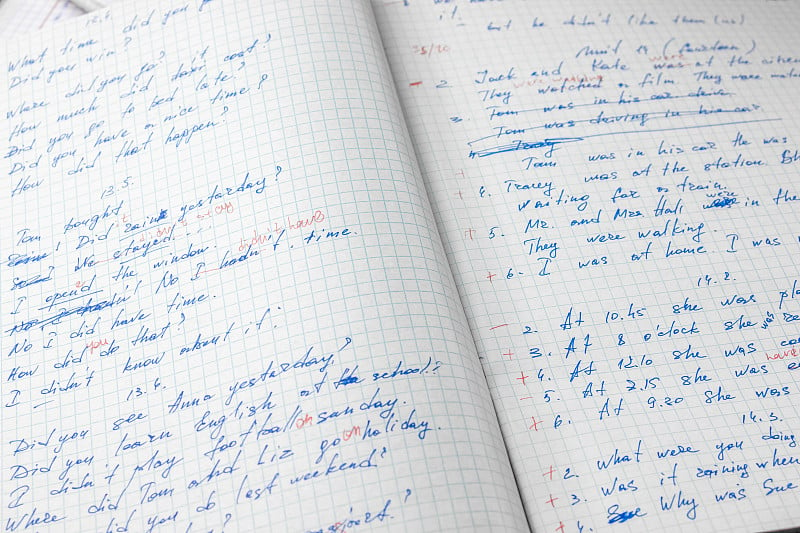 12.4.
What time did you
Did you win?
Where did you go?
How much did it cost?
Did you go to bed late?
Did you have a nice time?
How did that happen?
12.5.
Tom bought
Did rain yesterday?
We stayed...
I opend the window.
didn't have
No I hadn't time.
No I did have time.
How did you do that?
I didn't know about it.
13.4.
Did you see Anna yesterday?
Did you learn English at school?
I didn't play football on sanday.
Where did Tom and Liz go on holiday.
did you do last weekend?
it.
but he didn't like them (us)
35/20
Unit 14
- 2. Jack and Kate was were at the
They were watching watched a film. They were
3. Tom was in his car drive.
Tom was driving in his car
Tracy
+ Tom was in his car he was
+ 4. Tracey was at the station. Sh
waiting for a train.
+ 5. Mr. and Mrs. Hall were in the
They were walking.
+ 6. I was at home I was
14.2.
- 2. At 10.45 she was
+ 3. At 8 o'clock she was
+ 4. At 12.10 she was
- 5. At 2.15 she was
+ 6. At 9.20 she was
14.3.
+ 2. What were you doing
+ 3. Was it raining when
+ 4. Why was Sue